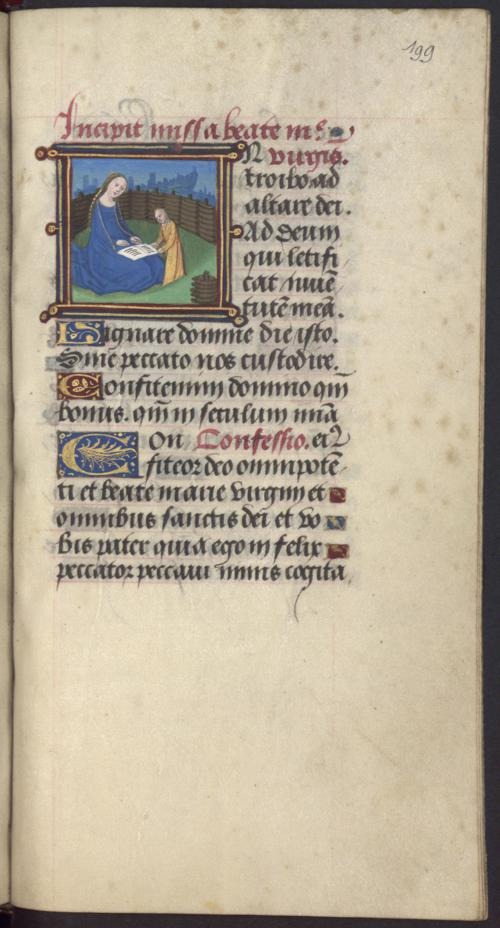 199
Incipit missa beate m̄e
N virgīs.
troibo ad
altare dei.
Ad deum
qui letifi
cat iuuē
tutē meā.
Dignare domine die isto.
Sine peccato nos custodire.
Confitemini domino qm̄
bonus. qm̄ in seculum mīa
On Confessio. eiꝰ
Cfiteor deo omnipotē
ti et beate marie virgini et
omnibus sanctis dei et vo
bis pater quia ego in felix
peccator peccaui nimis cogita